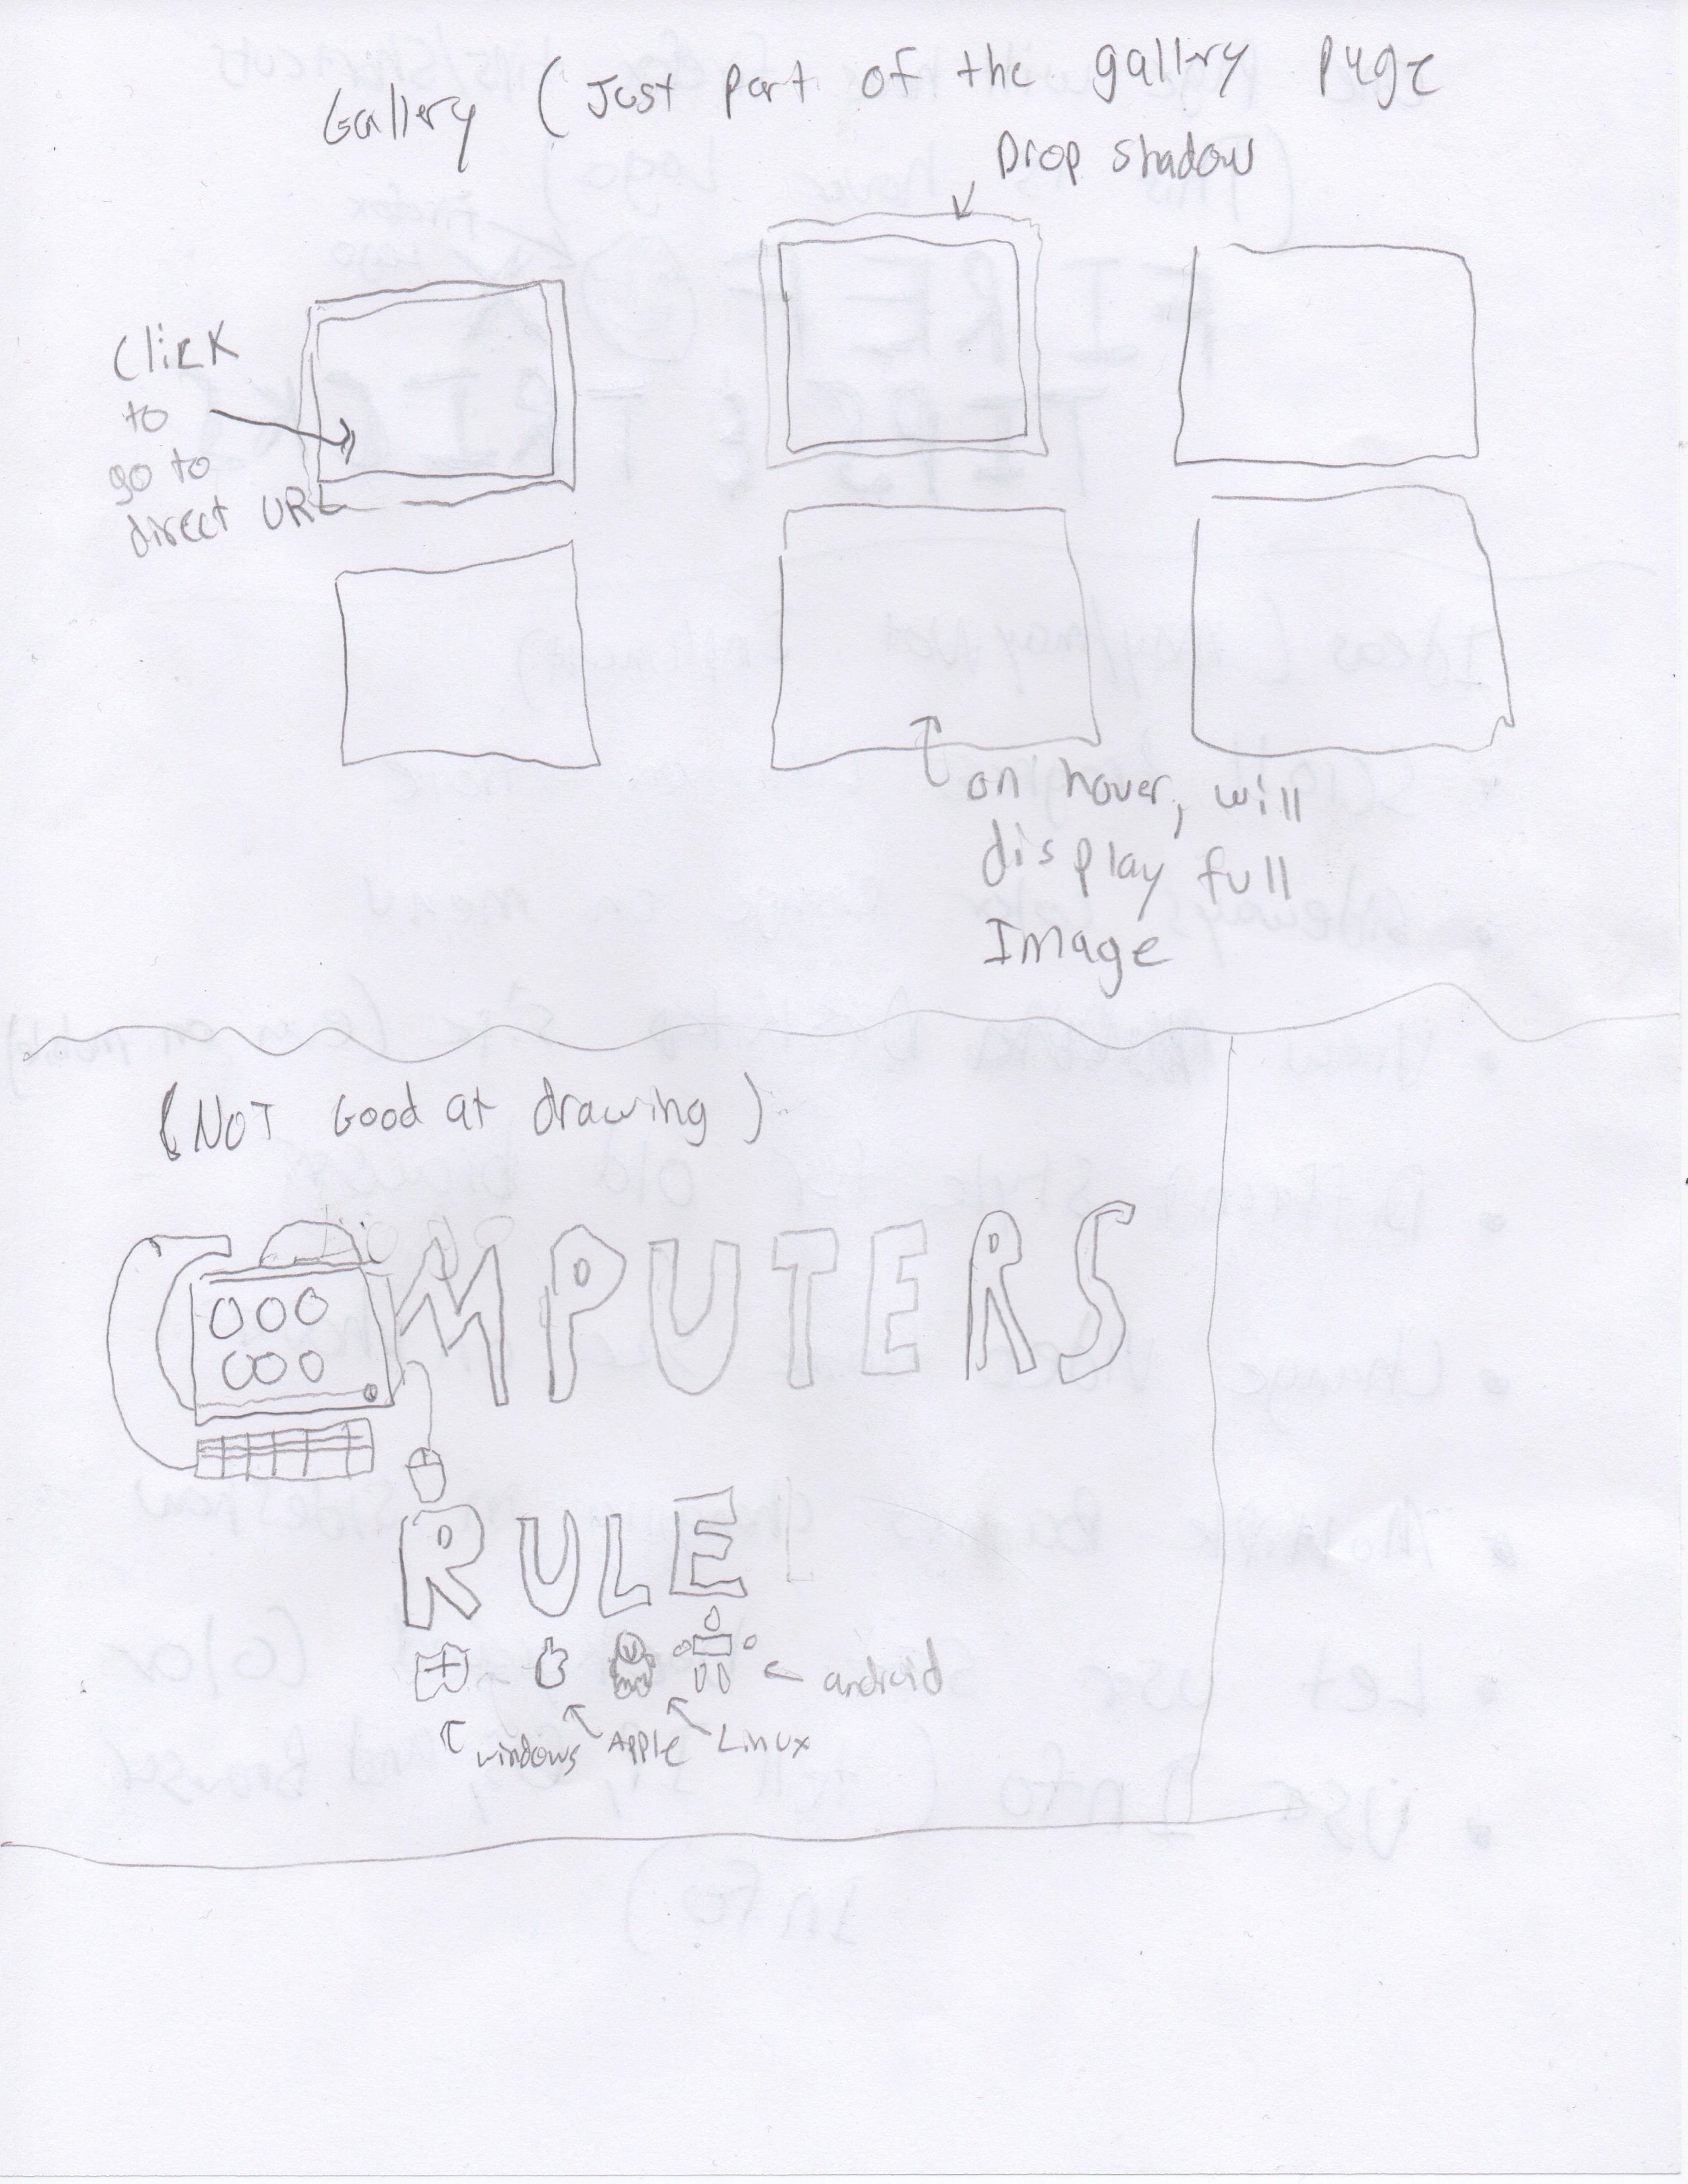 Gallery (Just part of the gallery page
Drop shadow
Click
to
go to
direct URL
on hover, will
display full
Image
(NOT Good at drawing)
COMPUTERS
RULE
android
windows Apple Linux